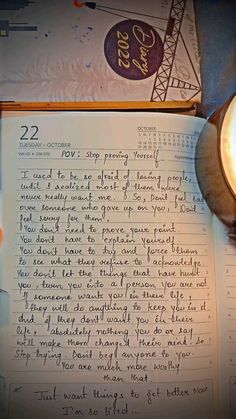 Diary
2022
22
TUESDAY • OCTOBER
OCTOBER
POV: Stop proving Yourself
I used to be so afraid of losing people,
until I realized most of them were
never really want me. So, Don't feel sad
over someone who gave up on you, Don't
feel sorry for them.
You don't need to prove your point.
You don't have to explain yourself
You don't have to try and force them
to see what they refuse to acknowledge.
You don't let the things that have hurt
you, turn you into a person you are not
If someone want you in their life,
They will do anything to keep you in it.
And if they don't want you in their
life, absolutely nothing you do or say
will make them changed their mind. So
Stop trying. Don't beg anyone to you.
You are much more worthy
than that.
Just want things to get better now
I'm so tired...